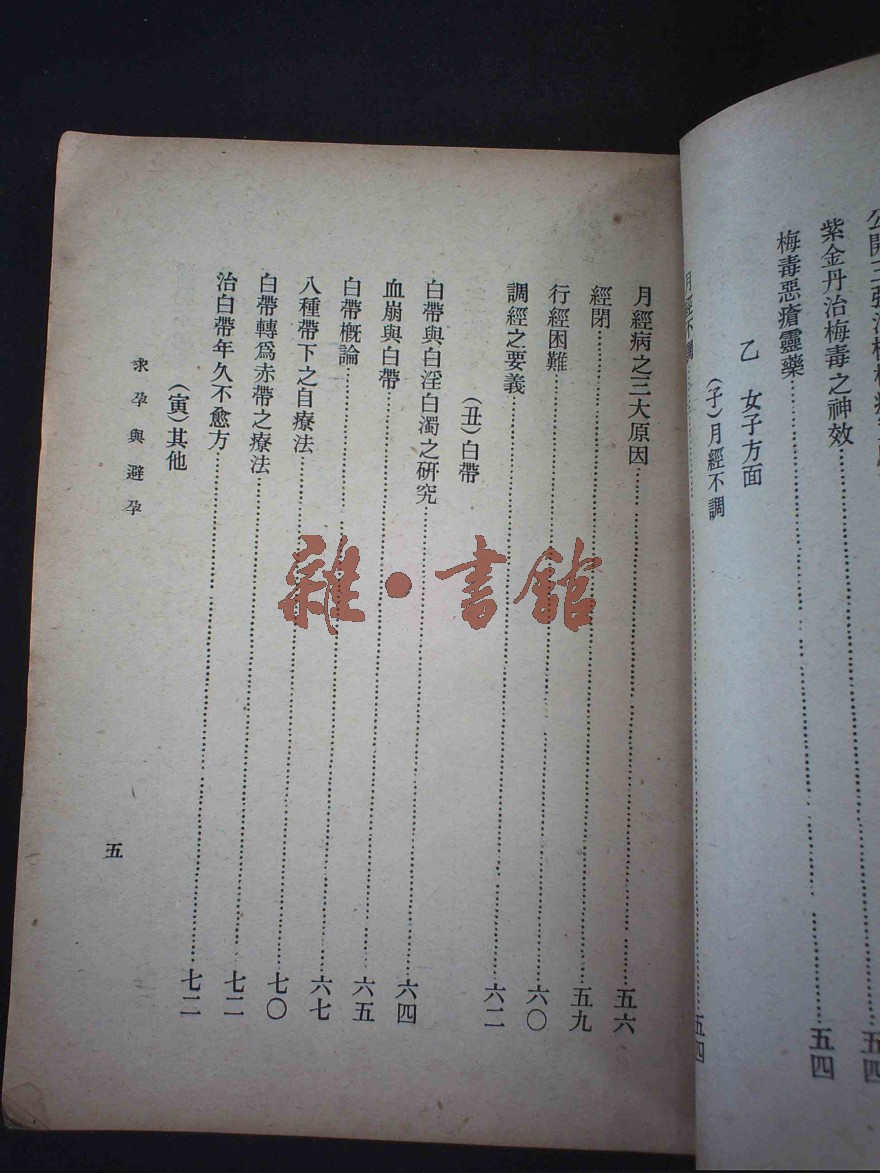 紫金丹治梅毒之神效……五四
梅毒惡瘡靈藥……五四
乙 女子方面
(子)月經不調
月經不調……五四
月經病之三大原因……五六
經閉……五九
行經困難……六〇
調經之要義……六二
(丑)白帶
白帶與白淫白濁之研究……六四
血崩與白帶……六五
白帶概論……六七
八種帶下之自療法……七〇
白帶轉爲赤帶之療法……七二
治白帶年久不愈方……七二
(寅)其他
求孕與避孕
五
雜·書館